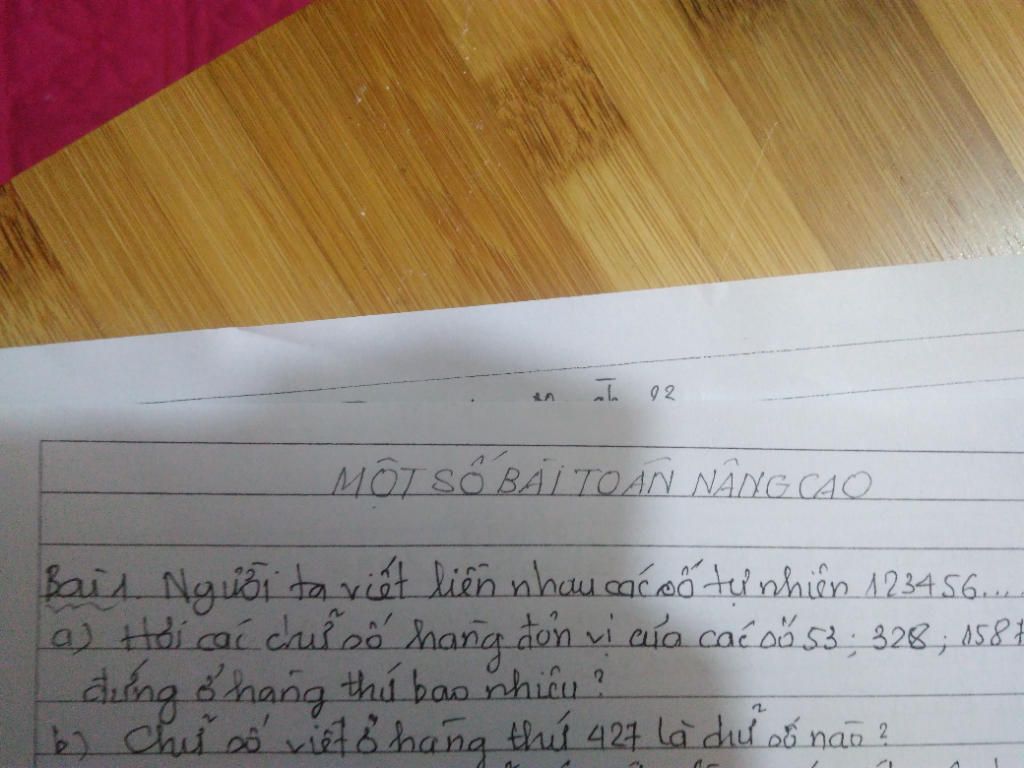 MỘT SỐ BÀI TOÁN NÂNG CAO
Bài 1. Người ta viết liền nhau các số tự nhiên 123456....
a) Hỏi các chữ số hàng đơn vị của các số 53; 328; 1587
đứng ở hàng thứ bao nhiêu?
b) Chữ số viết ở hàng thứ 427 là chữ số nào?